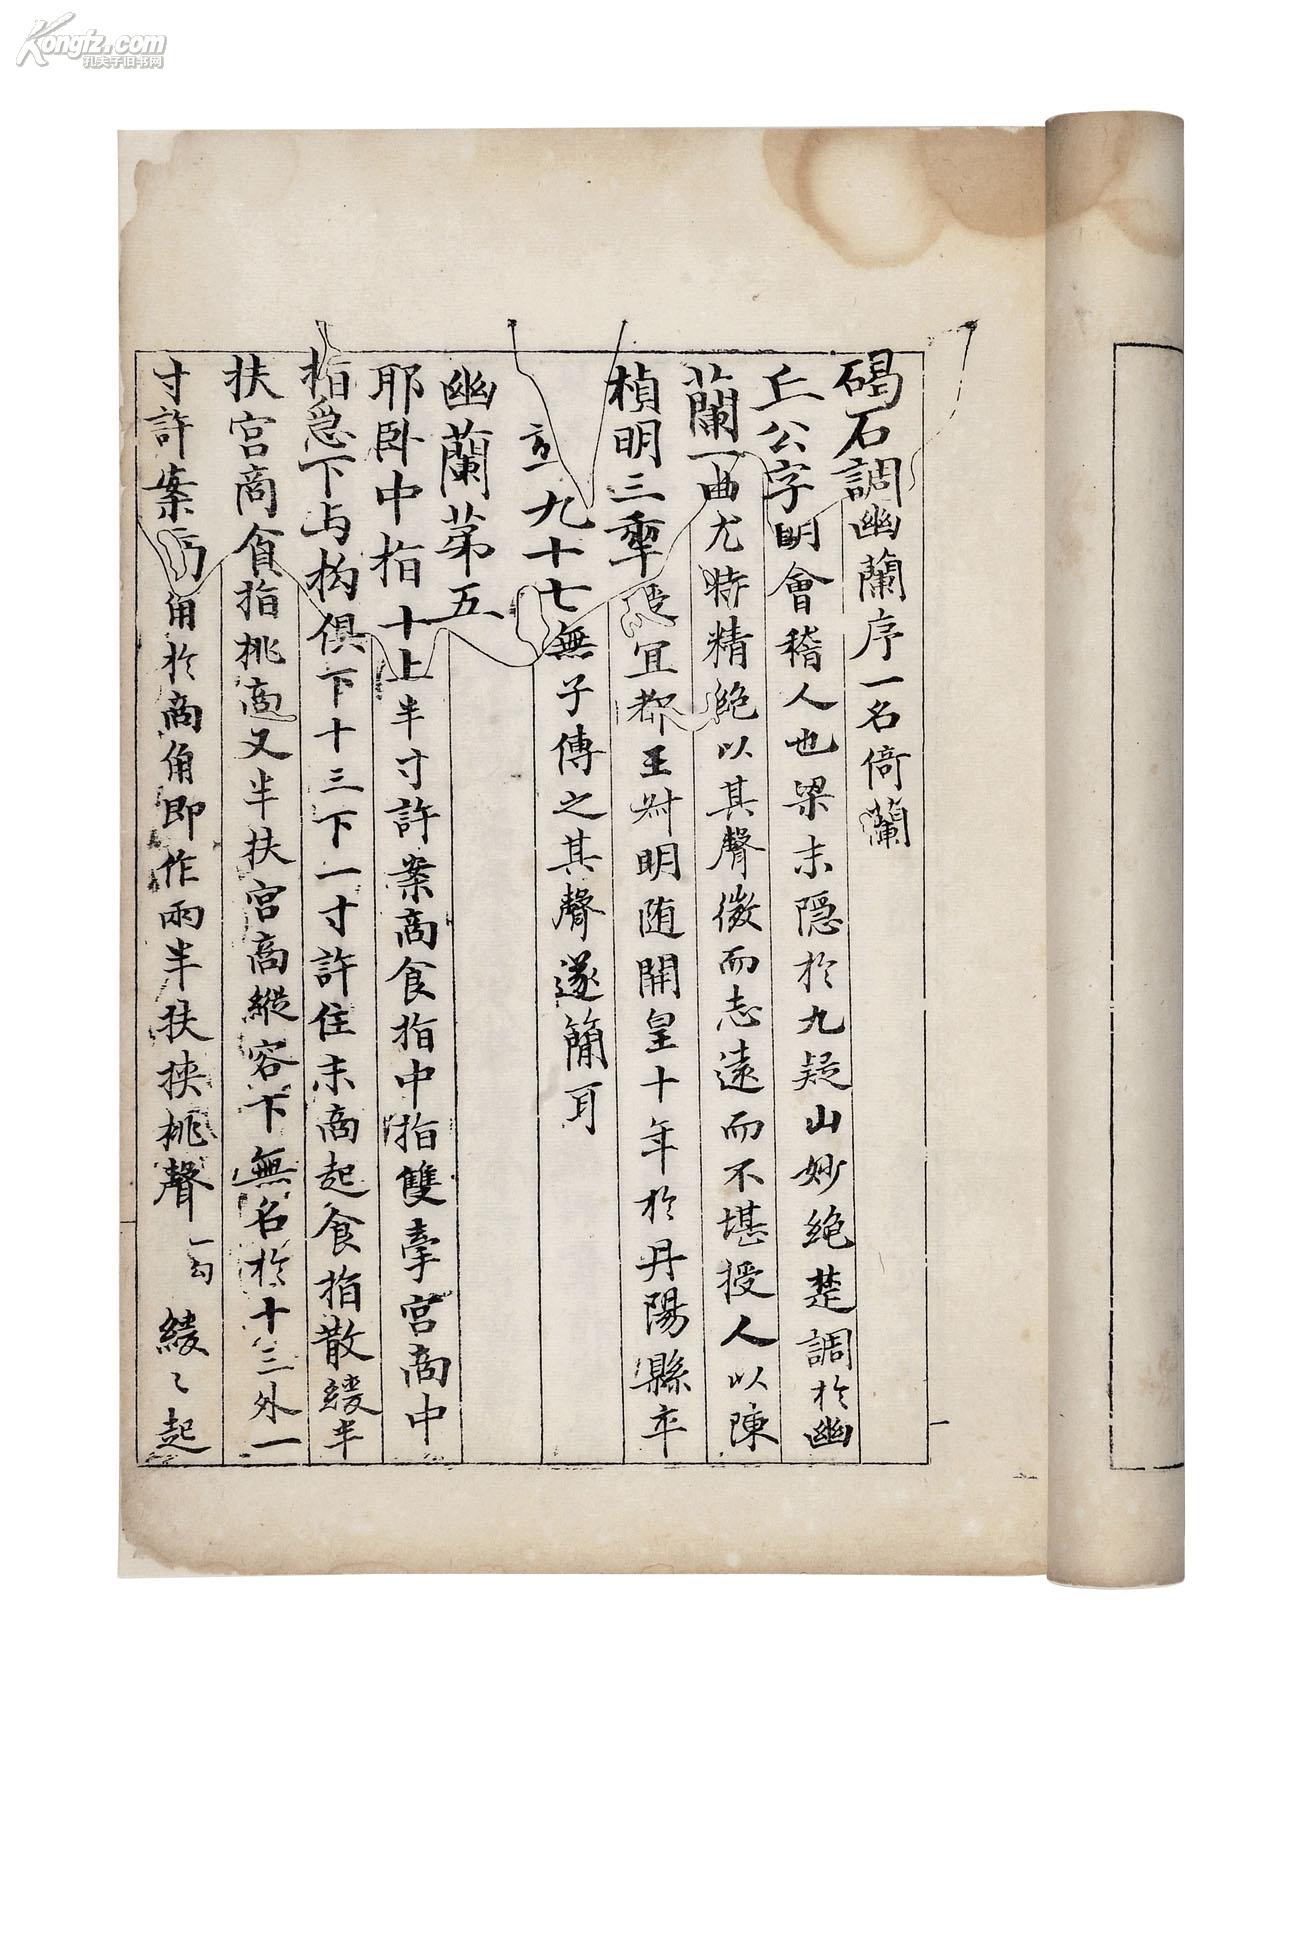 Kongfz.com
孔夫子旧书网
碣石調幽蘭序一名倚蘭
丘公字明會稽人也梁末隱於九疑山妙絶楚調於幽
蘭一曲尤特精絶以其聲微而志遠而不堪授人以陳
楨明三年授宜都王叔明随開皇十年於丹陽縣卒
九十七無子傳之其聲遂簡耳
幽蘭苐五
耶卧中指十上半寸許案商食指中指雙牽宮商中
指急下与拘俱下十三下一寸許住末商起食指散緩半
扶宮商食指挑商又半扶宮商縱容下無名於十三外一
寸許案商角於商角即作兩半扶挾挑聲一句緩〻起